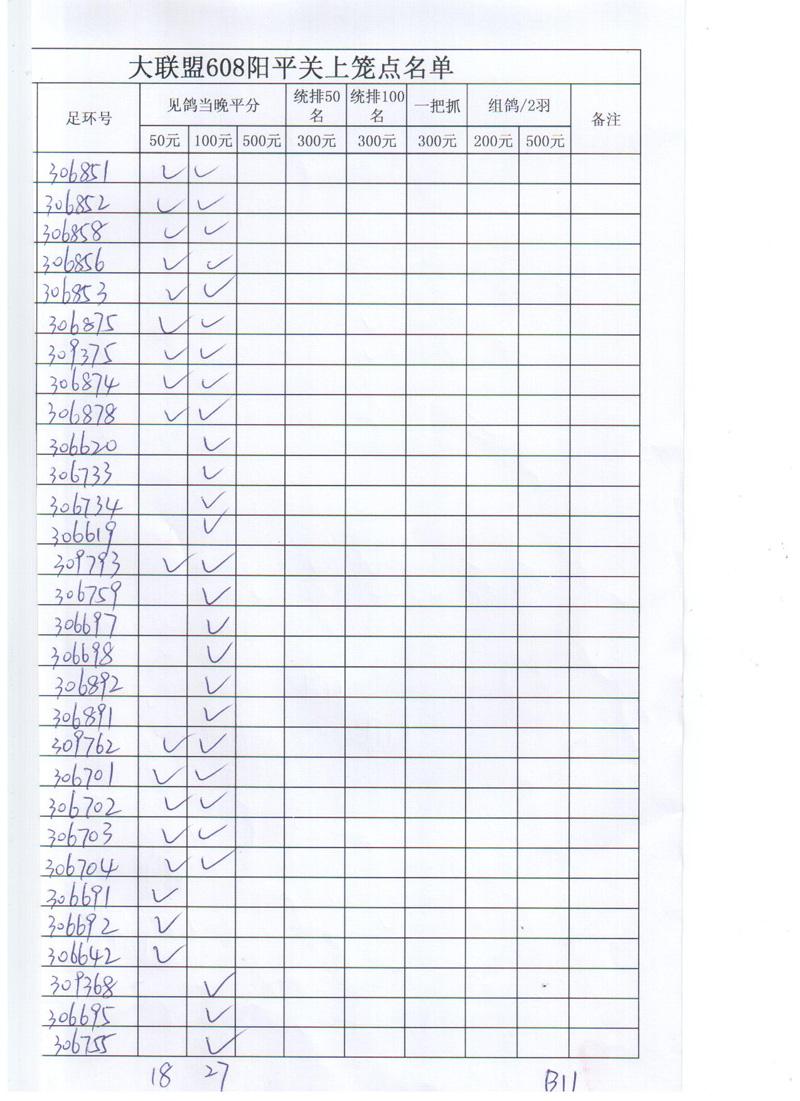 大联盟608阳平关上笼点名单
足环号 见鸽当晚平分 统排50名 统排100名 一把抓 组鸽/2羽 备注
50元 100元 500元 300元 300元 300元 200元 500元
306851 ✓ ✓
306852 ✓ ✓
306858 ✓ ✓
306856 ✓ ✓
306853 ✓ ✓
306875 ✓ ✓
309375 ✓ ✓
306874 ✓ ✓
306878 ✓ ✓
306620 ✓
306733 ✓
306734 ✓
306619 ✓
309793 ✓ ✓
306759 ✓
306697 ✓
306698 ✓
306892 ✓
306891 ✓
309762 ✓ ✓
306701 ✓ ✓
306702 ✓ ✓
306703 ✓ ✓
306704 ✓ ✓
306691 ✓
306692 ✓
306642 ✓
309368 ✓
306695 ✓
306755 ✓
18 27 B11